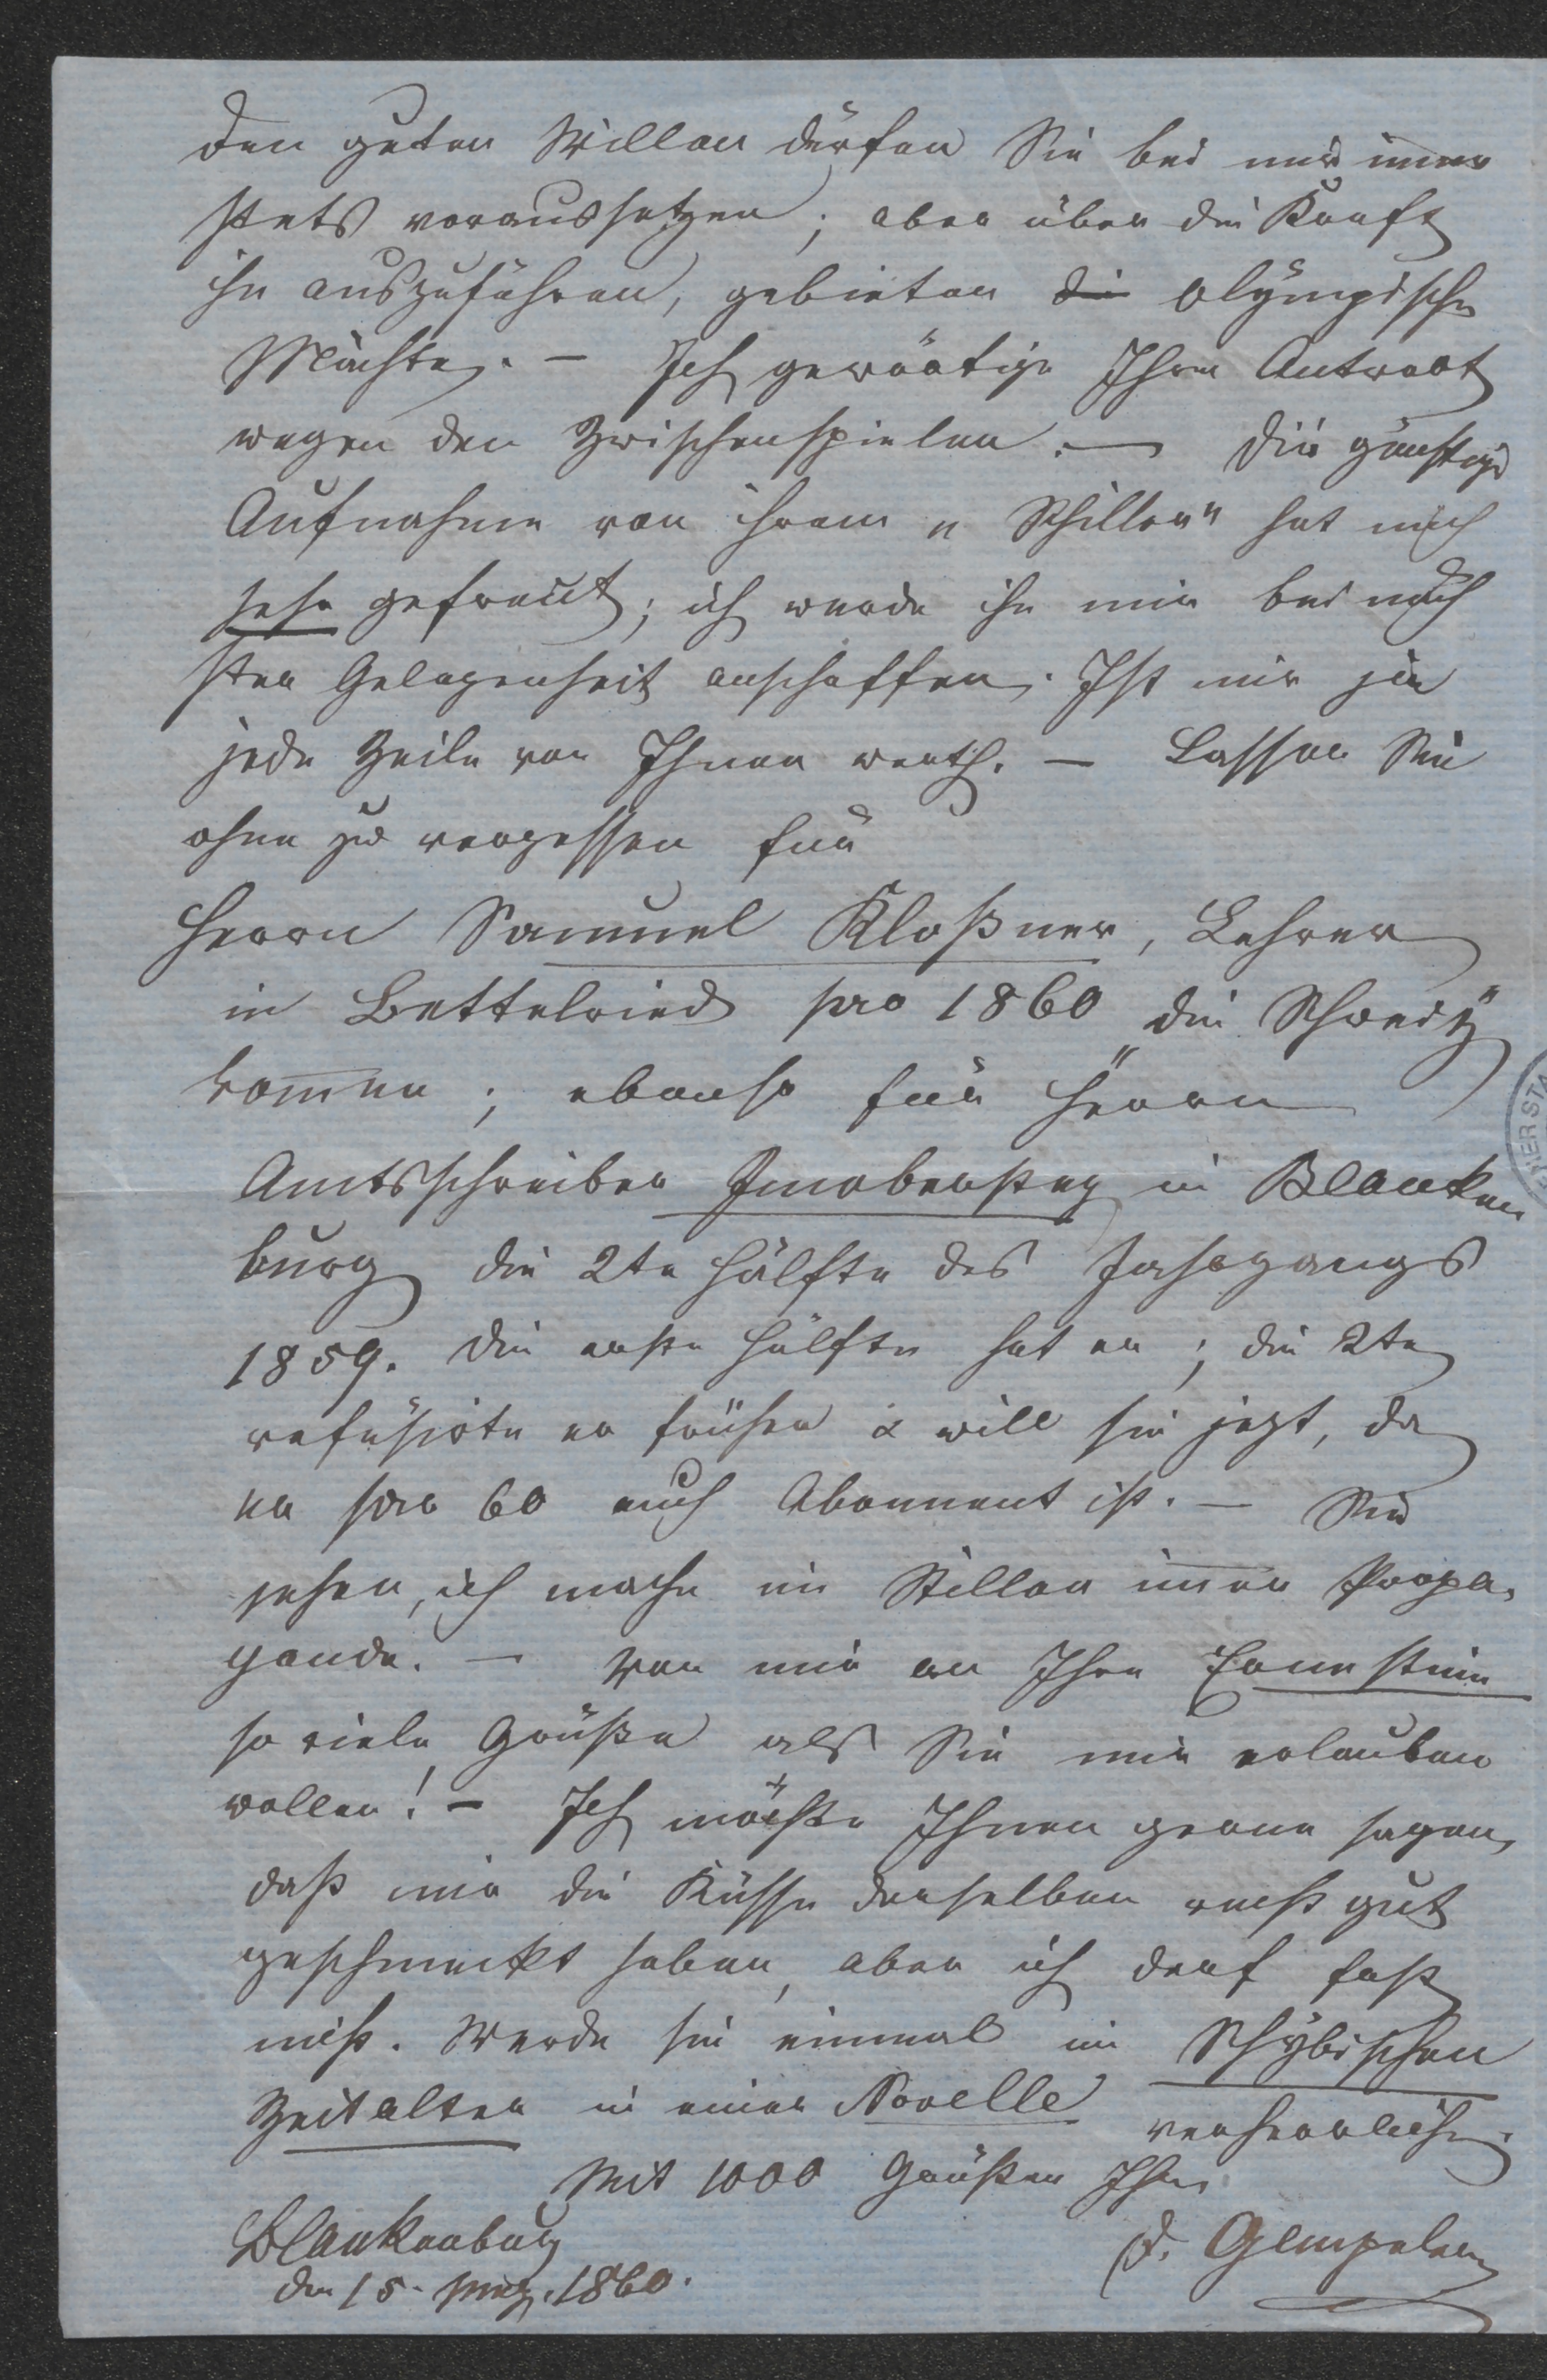 den guten Willen dürfen Sie bei mir immer
stets voraussetzen; aber über die Kraft
ihn auszuführen, gebieten die olÿmpische
Mächte. – Ich gewärtige Ihre Antwort
wegen den Zwischenspielen. – Die günstige
Aufnahme von ihrem „Schiller" hat mich
sehr gefreut; ich werde ihn mir bei näch
ster Gelegenheit anschaffen. Ist mir ja
jede Zeile von Ihnen werth. – Lassen Sie
ohne zu vergessen für
Herrn Samuel Kloßner, Lehrer
in Bettelried pro 1860 „die Schweiz"
kom̅en; ebenso für Herrn
Amtsschreiber Imobersteg in Blanken
burg die 2te Hälfte des Jahrgangs
1859. Die erste Hälfte hat er; die 2te
refüsirte er früher & will sie jezt, da
er pro 60 auch Abonnent ist. – Sie
sehen, ich mache im Stillen im̅er Propa-
gande. – Von mir an Ihre Ernestine
so viele Grüße als Sie mir erlauben
wollen! – Ich möchte Ihnen gerne sagen,
daß mir die Küsse derselben recht gut
geschmeckt haben, aber ich darf fast
nicht. Werde sie einmal im Schÿbischen
Zeitalter in einer Novelle verherrlichen.
Mit 1000 Grüßen Ihr
D. Gempeler
Blankenburg
den 15. Mrz. 1860.